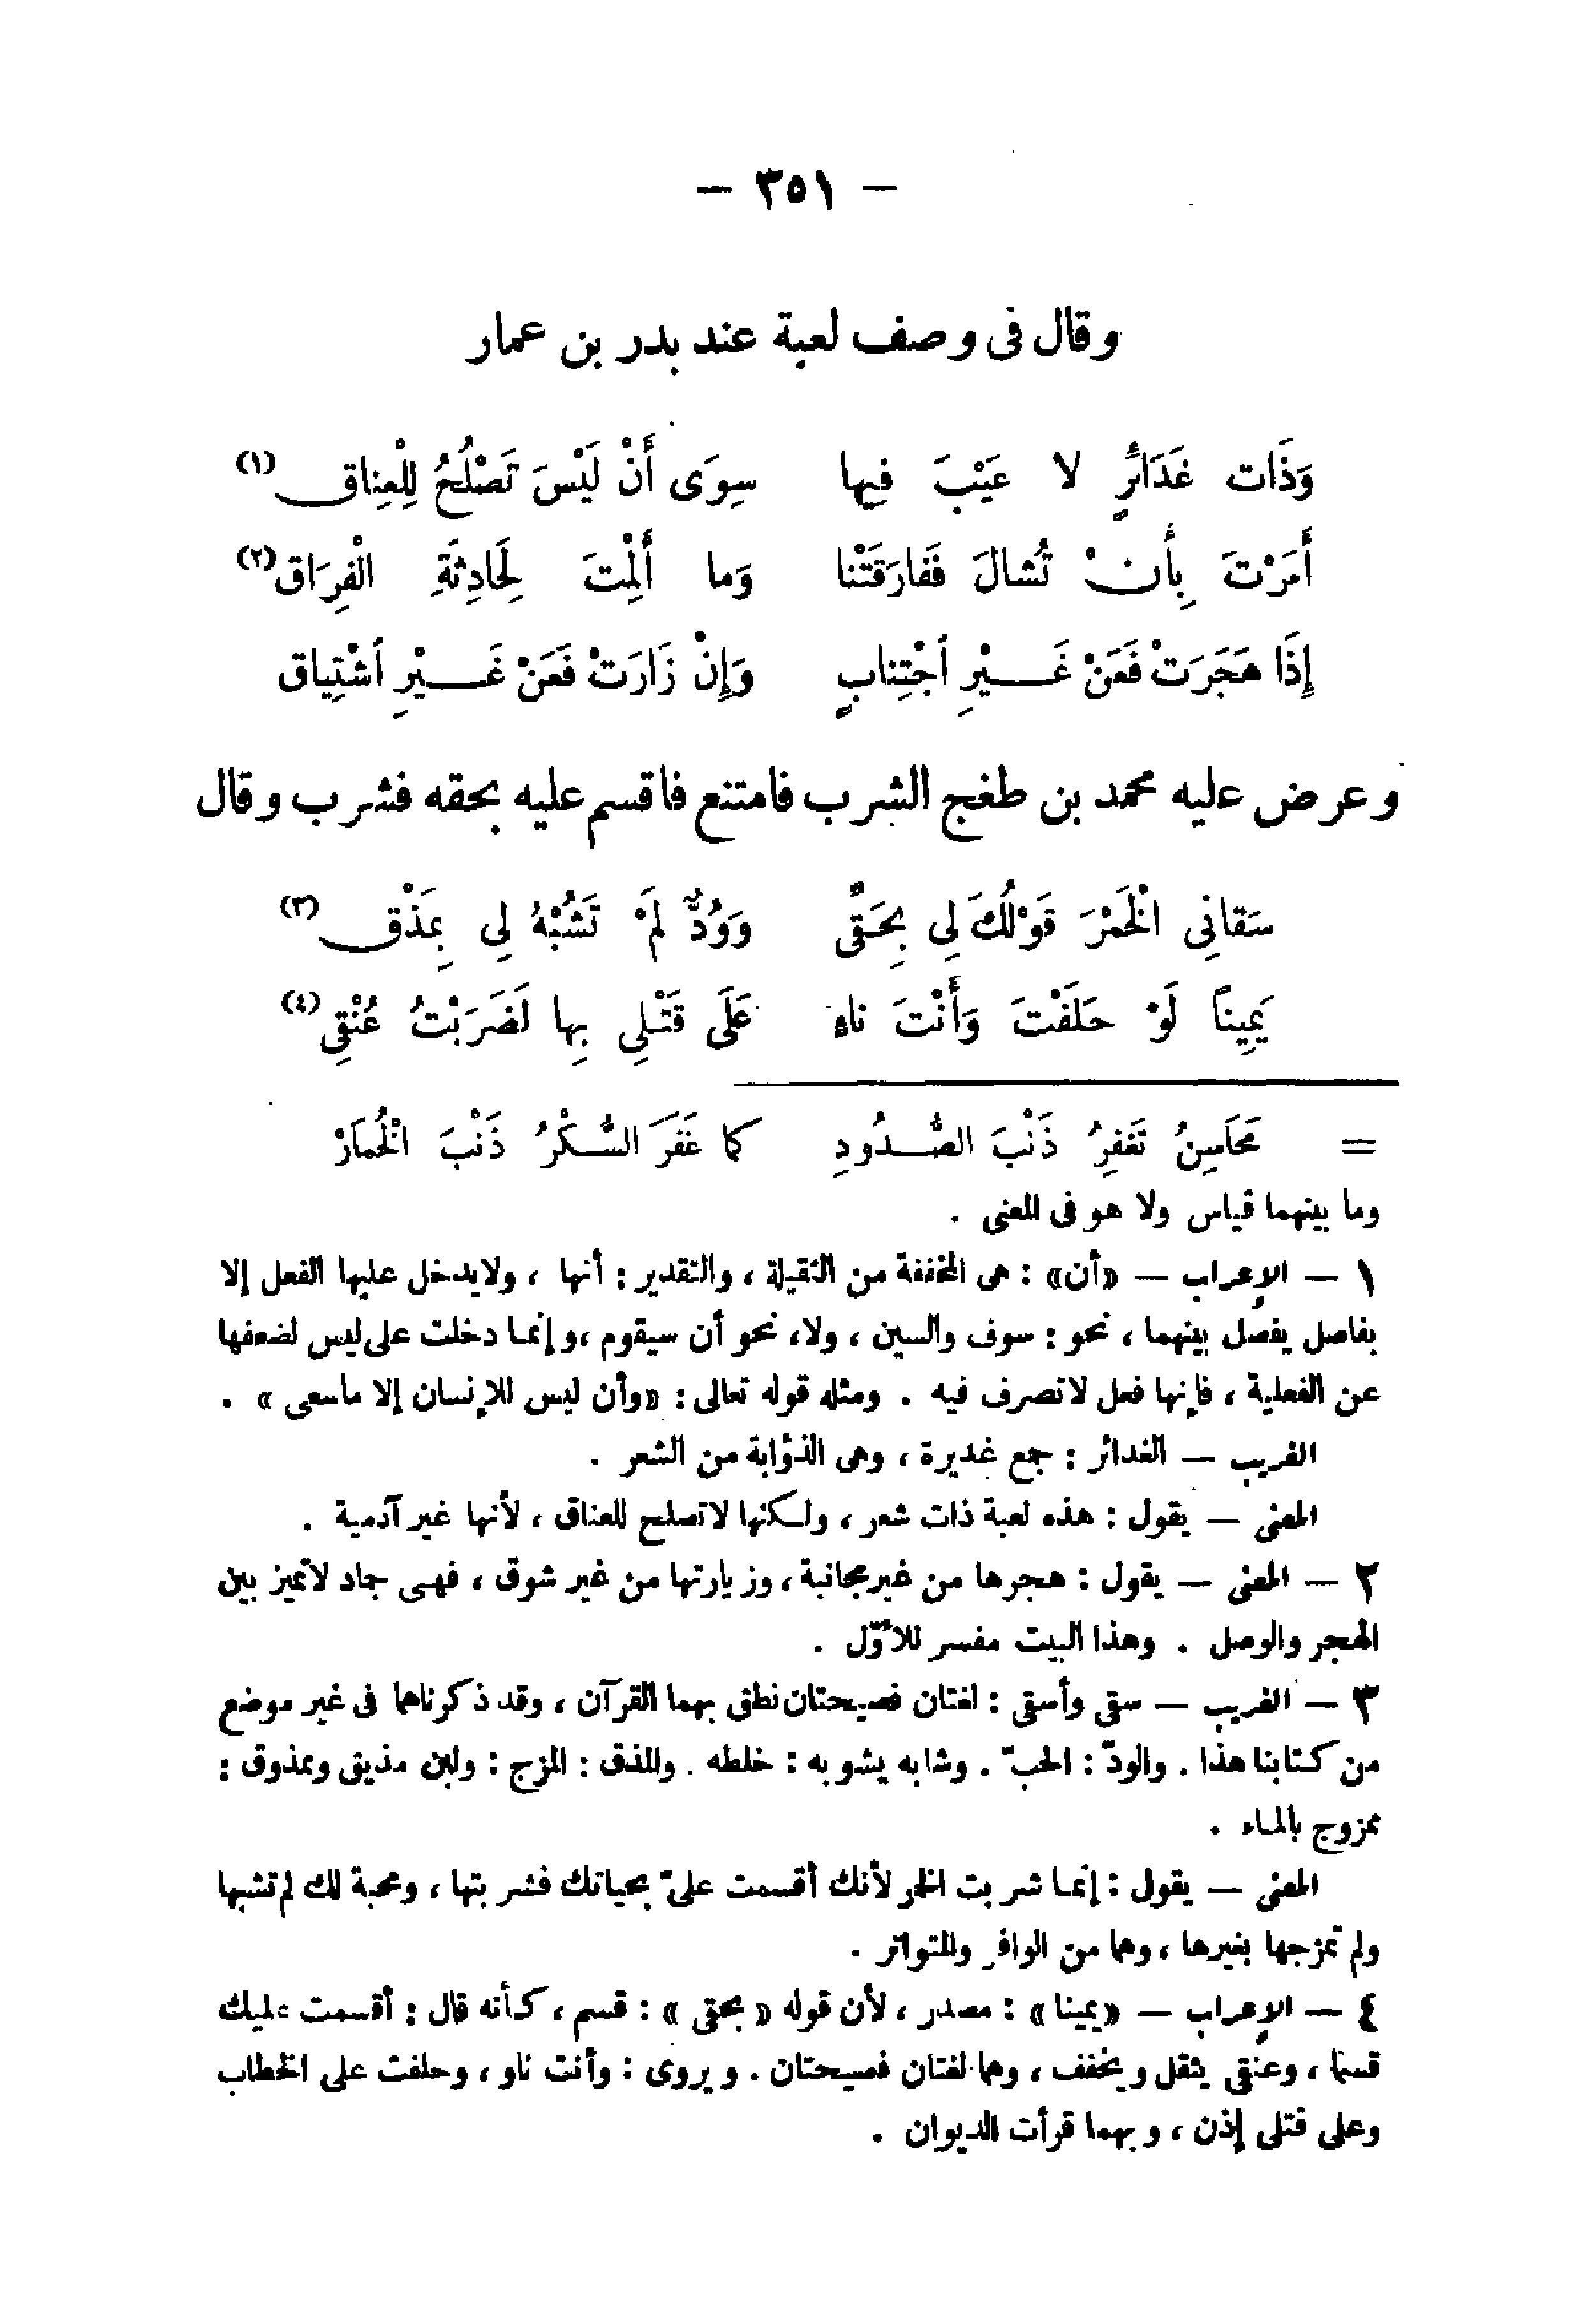 — ٣٥١ —
وقال فى وصف لعبة عند بدر بن عمار
وَذَات غَدَائرٍ لا عَيْبَ فِيها سِوَى أَنْ لَيْسَ تَصْلُحُ لِلْعِناق (١)
أَمَرْتَ بِأَنْ تُشالَ فَفارَقَتْنا وَما أَلِمْتَ لِحَادِثَةِ الْفِرَاق (٢)
إِذَا هَجَرَتْ فَعَنْ غَيْرِ اُجْتِنابٍ وَإِنْ زَارَتْ فَعَنْ غَيْرِ اُشْتِياق
وعرض عليه محمد بن طغج الشرب فامتنع فاقسم عليه بحقه فشرب وقال
سَقانِي الْخَمْرَ قَوْلُكَ لِى بِحَقِّى وَوُدٌّ لَمْ تَشُبْهُ لِى بِمَذْق (٣)
يَمِيناً لَوْ حَلَفْتَ وَأَنْتَ ناءٍ عَلَى قَتْلِى بِها لَضَرَبْتُ عُنْقِى (٤)
= مَحَاسِنُ تَغفِرُ ذَنْبَ الصُّدُودِ كما غَفَرَ السُّكْرُ ذَنْبَ الْخُمَارْ
وما بينهما قياس ولا هو فى المعنى .
١ — الإعراب — «أن» : هى المخففة من الثقيلة ، والتقدير : أنها ، ولايدخل عليها الفعل إلا
بفاصل يفصل بينهما ، نحو : سوف والسين ، ولا، نحو أن سيقوم ،وإنما دخلت على ليس لضعفها
عن الفعلية ، فإنها فعل لاتصرف فيه . ومثله قوله تعالى : «وأن ليس للإنسان إلا ماسعى» .
الغريب — الغدائر : جمع غديرة ، وهى الذؤابة من الشعر .
المعنى — يقول : هذه لعبة ذات شعر ، ولكنها لاتصلح للعناق ، لأنها غير آدمية .
٢ — المعنى — يقول : هجرها من غير مجانبة ، وزيارتها من غير شوق ، فهى جماد لاتميز بين
الهجر والوصل . وهذا البيت مفسر للأوّل .
٣ — الغريب — سقى وأسقى : لغتان فصيحتان نطق بهما القرآن ، وقد ذكرناهما فى غير موضع
من كتابنا هذا . والودّ : الحبّ . وشابه يشوبه : خلطه . والمذق : المزج : ولبن مذيق وممذوق :
ممزوج بالماء .
المعنى — يقول : إنما شربت الخمر لأنك أقسمت علىّ بحياتك فشربتها ، ومحبة لك لم تشبها
ولم تمزجها بغيرها ، وهما من الوافر والمتواتر .
٤ — الإعراب — «يمينا» : مصدر ، لأن قوله «بحقى» : قسم ، كأنه قال : أقسمت عليك
قسما ، وعنقى يثقل ويخفف ، وهما لغتان فصيحتان . ويروى : وأنت ناو ، وحلفت على الخطاب
وعلى قتلى إذن ، وبهما قرأت الديوان .